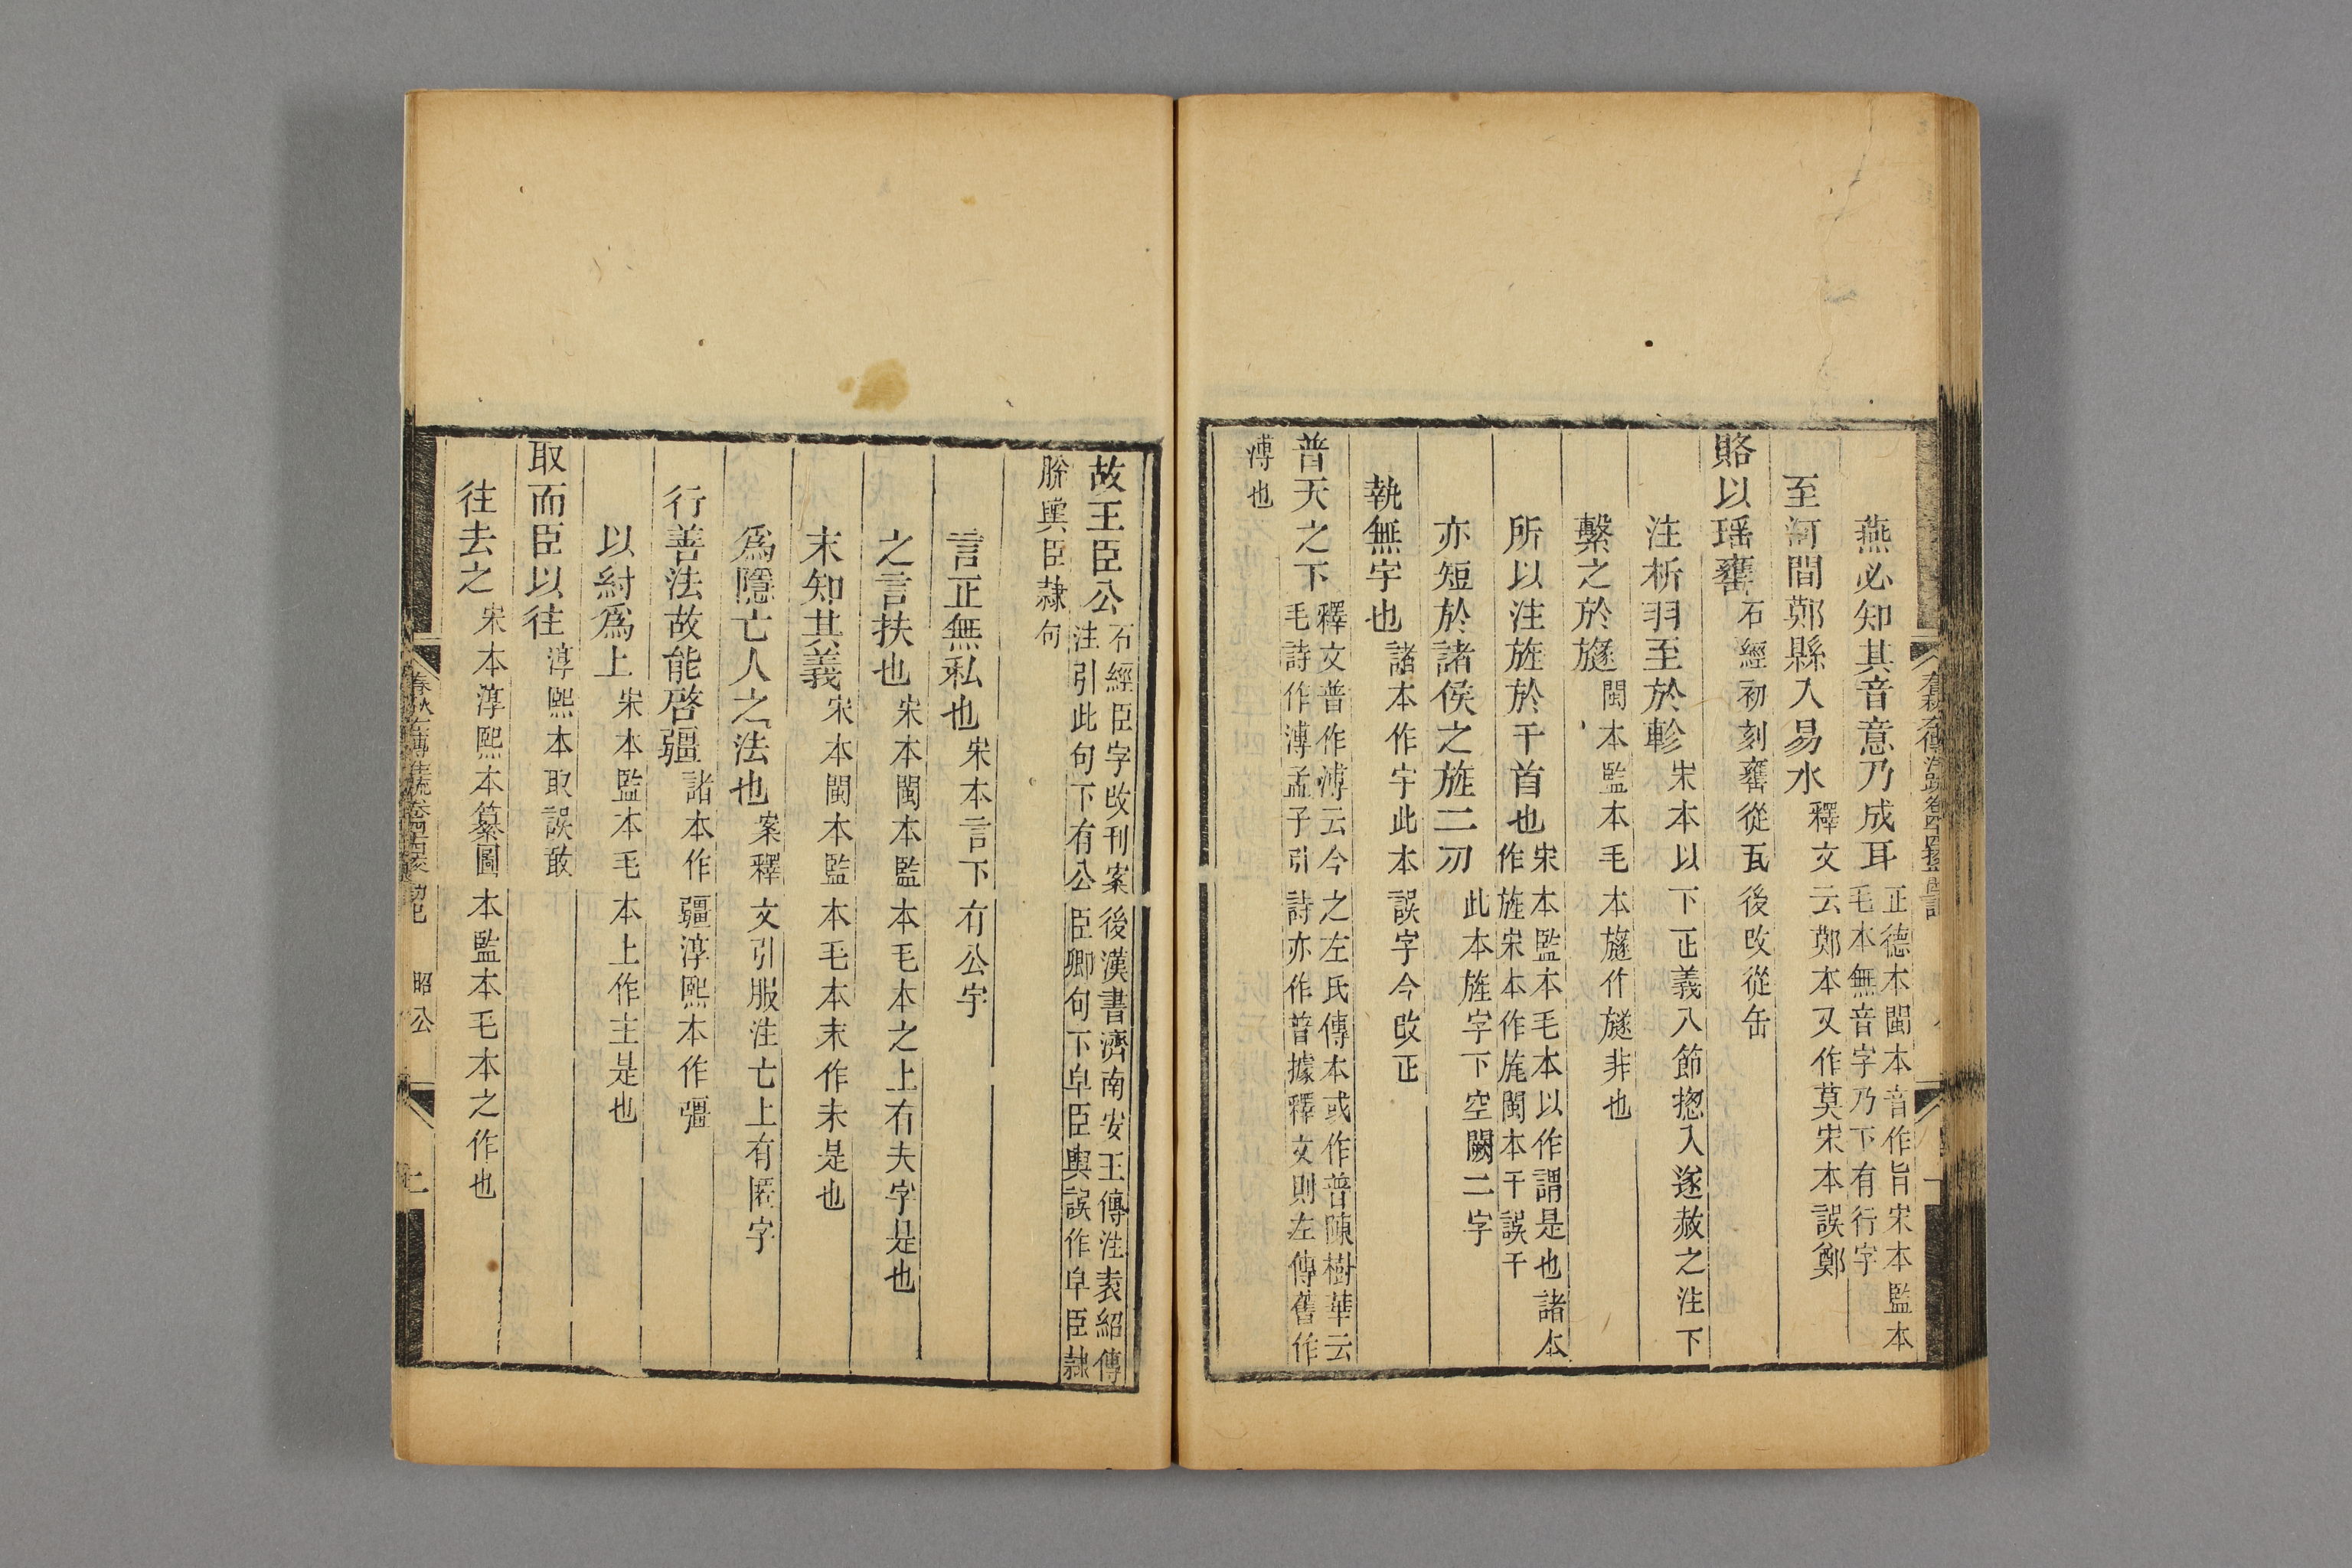 燕必知其音意乃成耳正德本閩本音作旨宋本監本毛本無音字乃下有行字
至河間鄚縣入易水釋文云鄚本又作莫宋本誤鄭
賂以瑤罋石經初刻罋從瓦後改從缶
注析羽至於軫宋本以下正義八節揔入遂赦之注下
繫之於旞閩本監本毛本旞作旞非也
所以注旌於干首也宋本監本毛本以作謂是也諸本作旌宋本作旄閩本干誤于
亦短於諸侯之旌二刃此本旌字下空闕二字
執無宇也諸本作宇此本誤字今改正
普天之下釋文普作溥云今之左氏傳本或作普陳樹華云毛詩作溥孟子引詩亦作普據釋文則左傳舊作
溥也
故王臣公石經臣字改刊案後漢書濟南安王傳注袁紹傳注引此句下有公臣卿句下皁臣輿誤作皁臣隷
脫輿臣隷句
言正無私也宋本言下有公字
之言扶也宋本閩本監本毛本之上有夫字是也
末知其義宋本閩本監本毛本末作未是也
爲隱亡人之法也案釋文引服注亡上有匿字
行善法故能啓疆諸本作疆淳熙本作彊
以紂爲上宋本監本毛本上作主是也
取而臣以往淳熙本取誤敢
往去之宋本淳熙本纂圖本監本毛本之作也
昭公